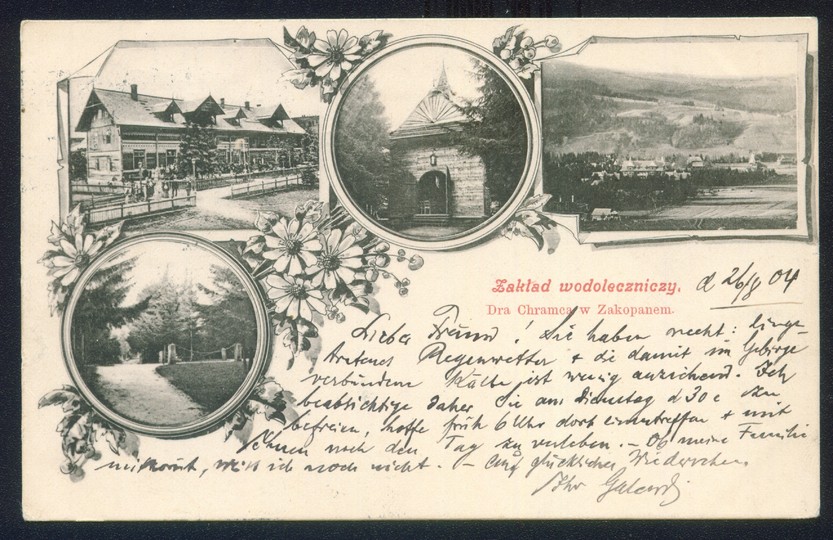 Zakład wodoleczniczy.
Dra Chramca w Zakopanem.
d 26/8 04
Lieber Freund! Sie haben recht: Einge-
tretenes Regenwetter + die damit im Gebirge
verbundene Kälte ist wenig anziehend. Ich
beabsichtige daher Sie am Dienstag d 30 c zu
befreien, hoffe früh 6 Uhr dort einzutreffen + mit
Ihnen noch den Tag zu verleben. – Ob meine Familie
mitkommt, weiß ich noch nicht. – Auf glückliches Wiedersehen
Ihr